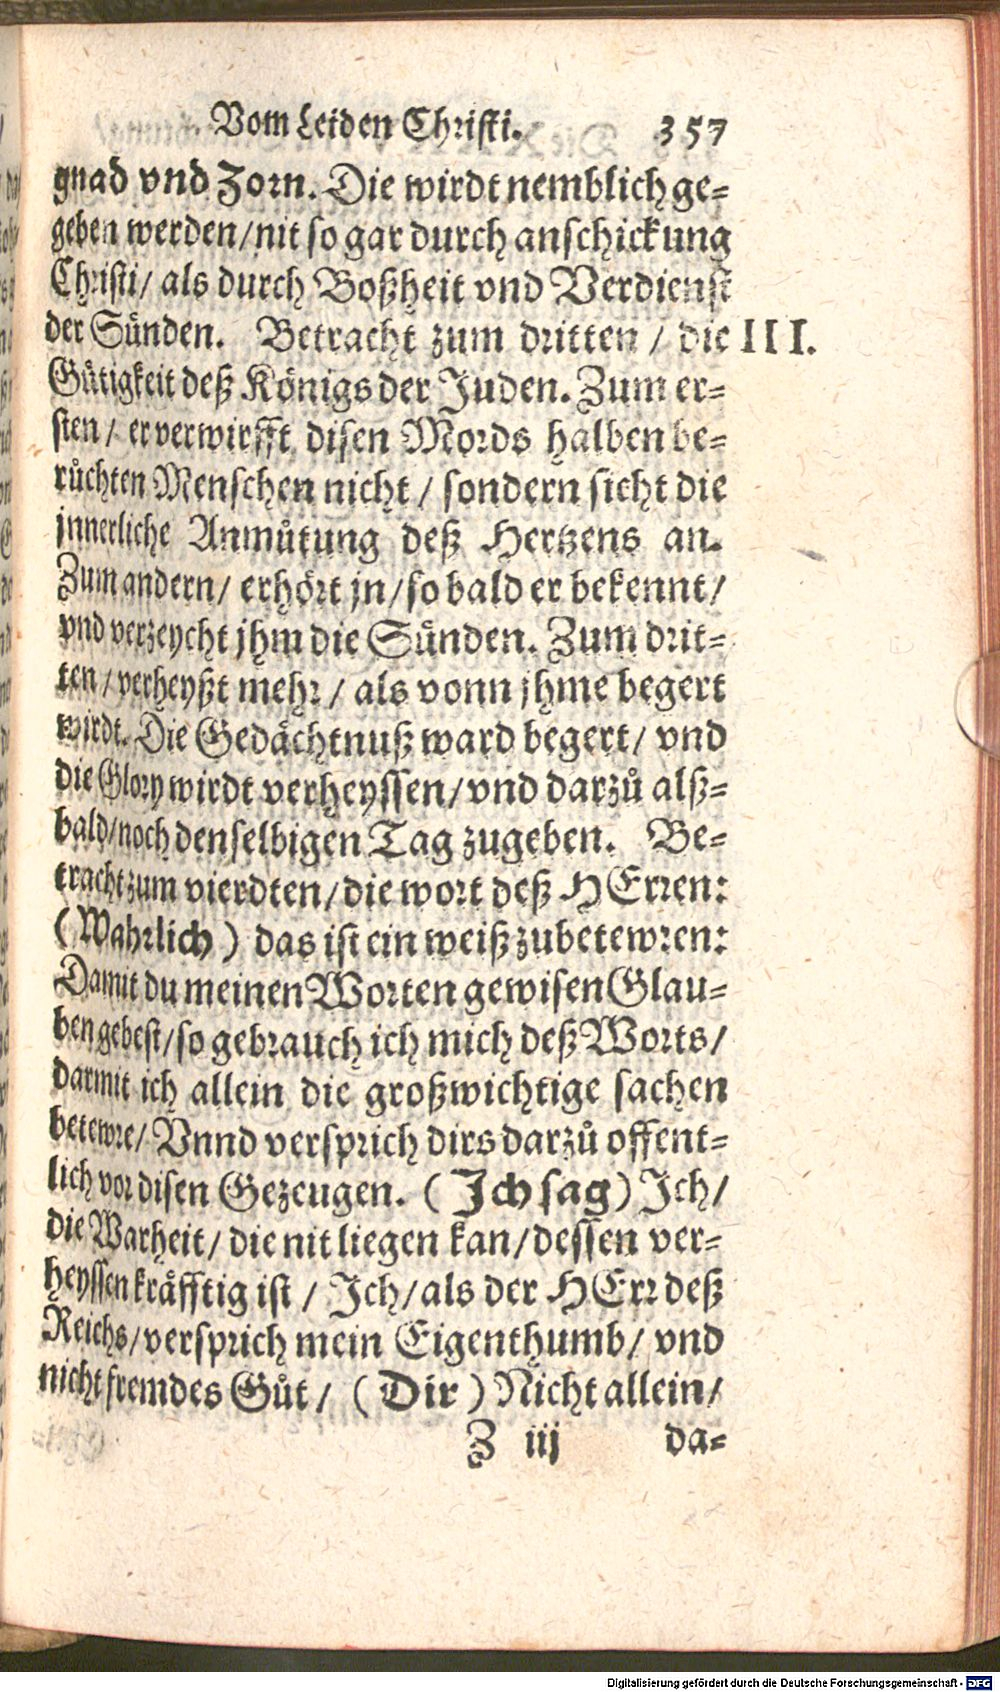 Vom Leiden Christi. 357
gnad vnd Zorn. Die wirdt nemblich ge-
geben werden/ nit so gar durch anschickung
Christi/ als durch Boßheit vnd Verdienst
der Sünden. Betracht zum dritten / die III.
Gütigkeit deß Königs der Juden. Zum er-
sten / er verwirfft disen Mords halben be-
růchten Menschen nicht / sondern sicht die
jnnerliche Anmůtung deß Hertzens an.
Zum andern/ erhört jn/ so bald er bekennt/
vnd verzeycht jhm die Sünden. Zum drit-
ten / verheyßt mehr / als vonn jhme begert
wirdt. Die Gedächtnuß ward begert/ vnd
die Glory wirdt verheyssen/ vnd darzů alß-
bald/ noch denselbigen Tag zugeben. Be-
tracht zum vierdten/ die wort deß HErren:
(Wahrlich) das ist ein weiß zubetewren:
Damit du meinen Worten gewisen Glau-
ben gebest/ so gebrauch ich mich deß Worts/
darmit ich allein die großwichtige sachen
betewre/ Vnnd versprich dirs darzů offent-
lich vor disen Gezeugen. (Jch sag) Jch/
die Warheit/ die nit liegen kan/ dessen ver-
heyssen kräfftig ist / Jch/ als der HErr deß
Reichs/ versprich mein Eigenthumb/ vnd
nicht fremdes Gůt / (Dir) Nicht allein/
Z iij da-
Digitalisierung gefördert durch die Deutsche Forschungsgemeinschaft - DFG